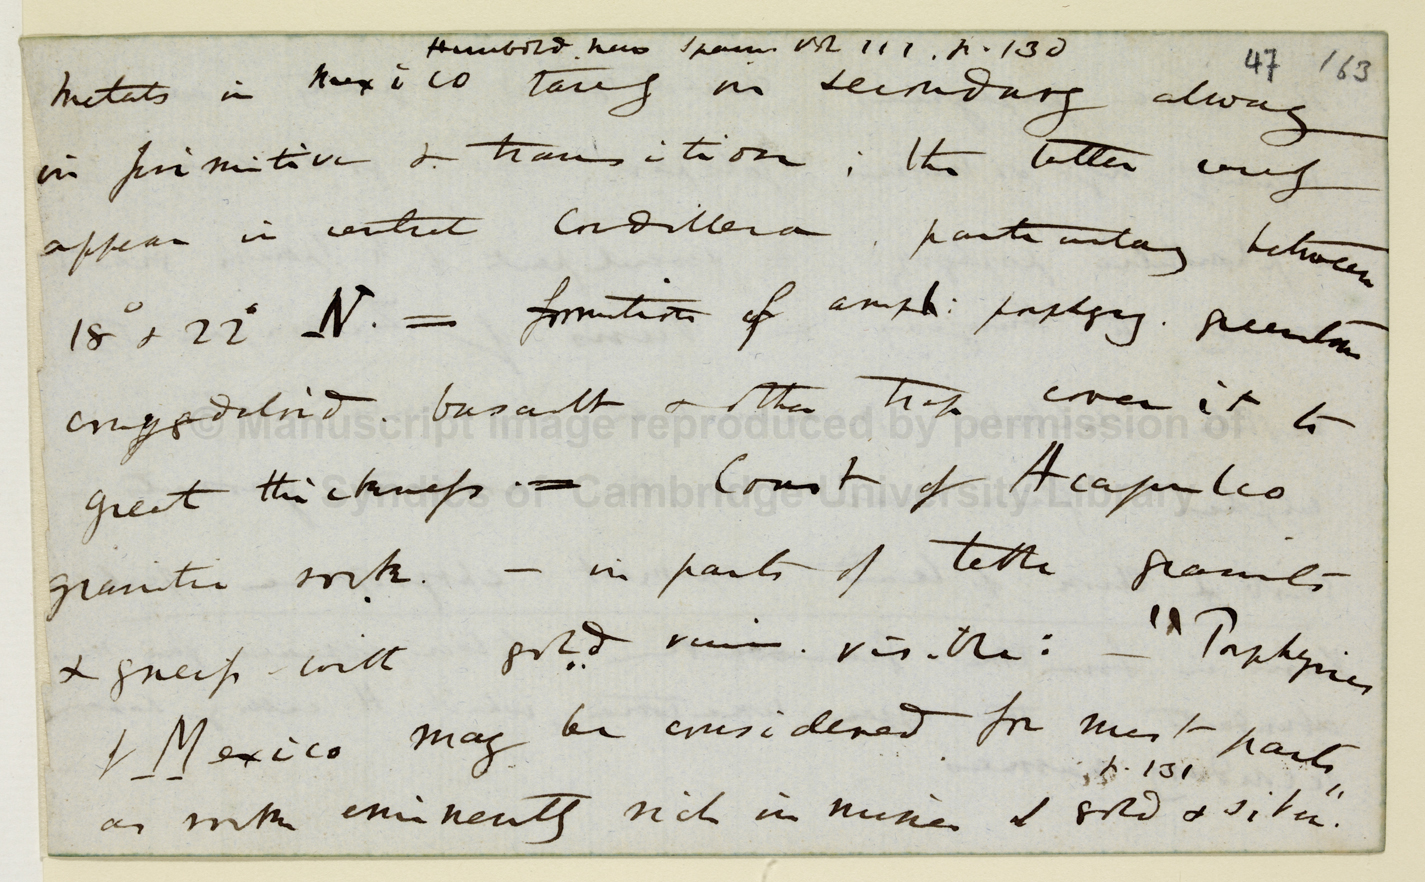 Humbold. New Spain Vol III. p. 130
47 163
Metals in Mexico rarely in secondary always
in primitive & transition; the latter rarely
appear in central Cordillera, particularly between
18° & 22° N. = formation of amph: porphyry. greenstone
amygdaloid. basalt & other trap cover it to
great thickness. = Coast of Acapulco
granite rock. — in parts of table granite
& gneiss with gold veins visible: — "Porphyries
of Mexico may be considered for most parts
p. 131
as rocks eminently rich in mines of gold & silver".
© Manuscript image reproduced by permission of
Syndics of Cambridge University Library